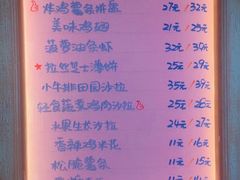 炸鸡薯条拼盘 27元/32元
美味鸡翅 21元/25元
菠萝油条虾 32元/34元
★拉丝芝士薄饼 25元/29元
小牛排田园沙拉 35元/39元
轻食蔬菜鸡肉沙拉 25元/26元
水果生长沙拉 24元/27元
香辣鸡米花 11元/16元
松脆薯条 11元/15元
11元/14元